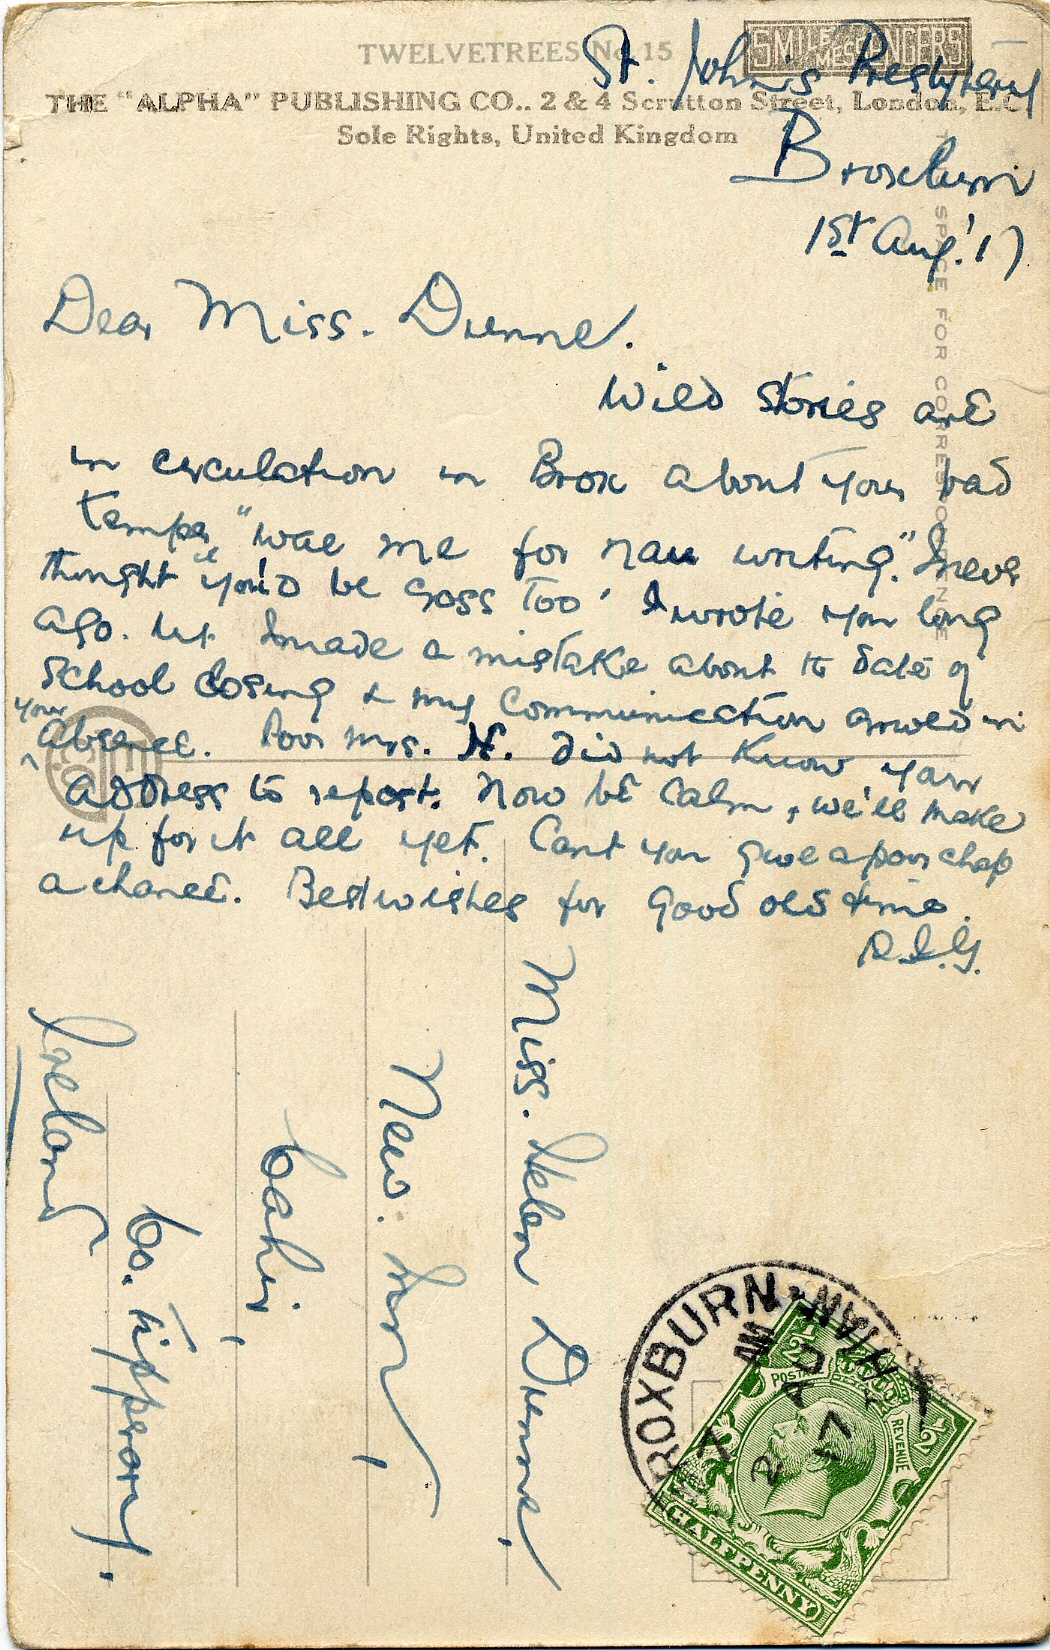 TWELVETREES No. 15
SMILE MESSENGERS
THE "ALPHA" PUBLISHING CO.. 2 & 4 Scrutton Street, London, E.C.
Sole Rights, United Kingdom
THE SPACE FOR CORRESPONDENCE
St. John's Presbytery
Broxburn
1st Aug. '17
Dear Miss. Dunne.
Wild stories are
in circulation in Brox about your bad
temper "wae me for nau writing." I never
thought you'd be cross too' I wrote you long
ago. but I made a mistake about the date of
School closing & my Communication arrived in
your
absence. Poor Mrs. H. did not know your
address to report. Now be calm, we'll make
up for it all yet. Cant you give a poor chap
a chance. Best wishes for good old time.
Miss. Helen Dunne,
New. Inn,
Cahir,
Co. Tipperary,
Ireland
BROXBURN
7
2 AU
17
½ ½
POSTAGE REVENUE
HALFPENNY